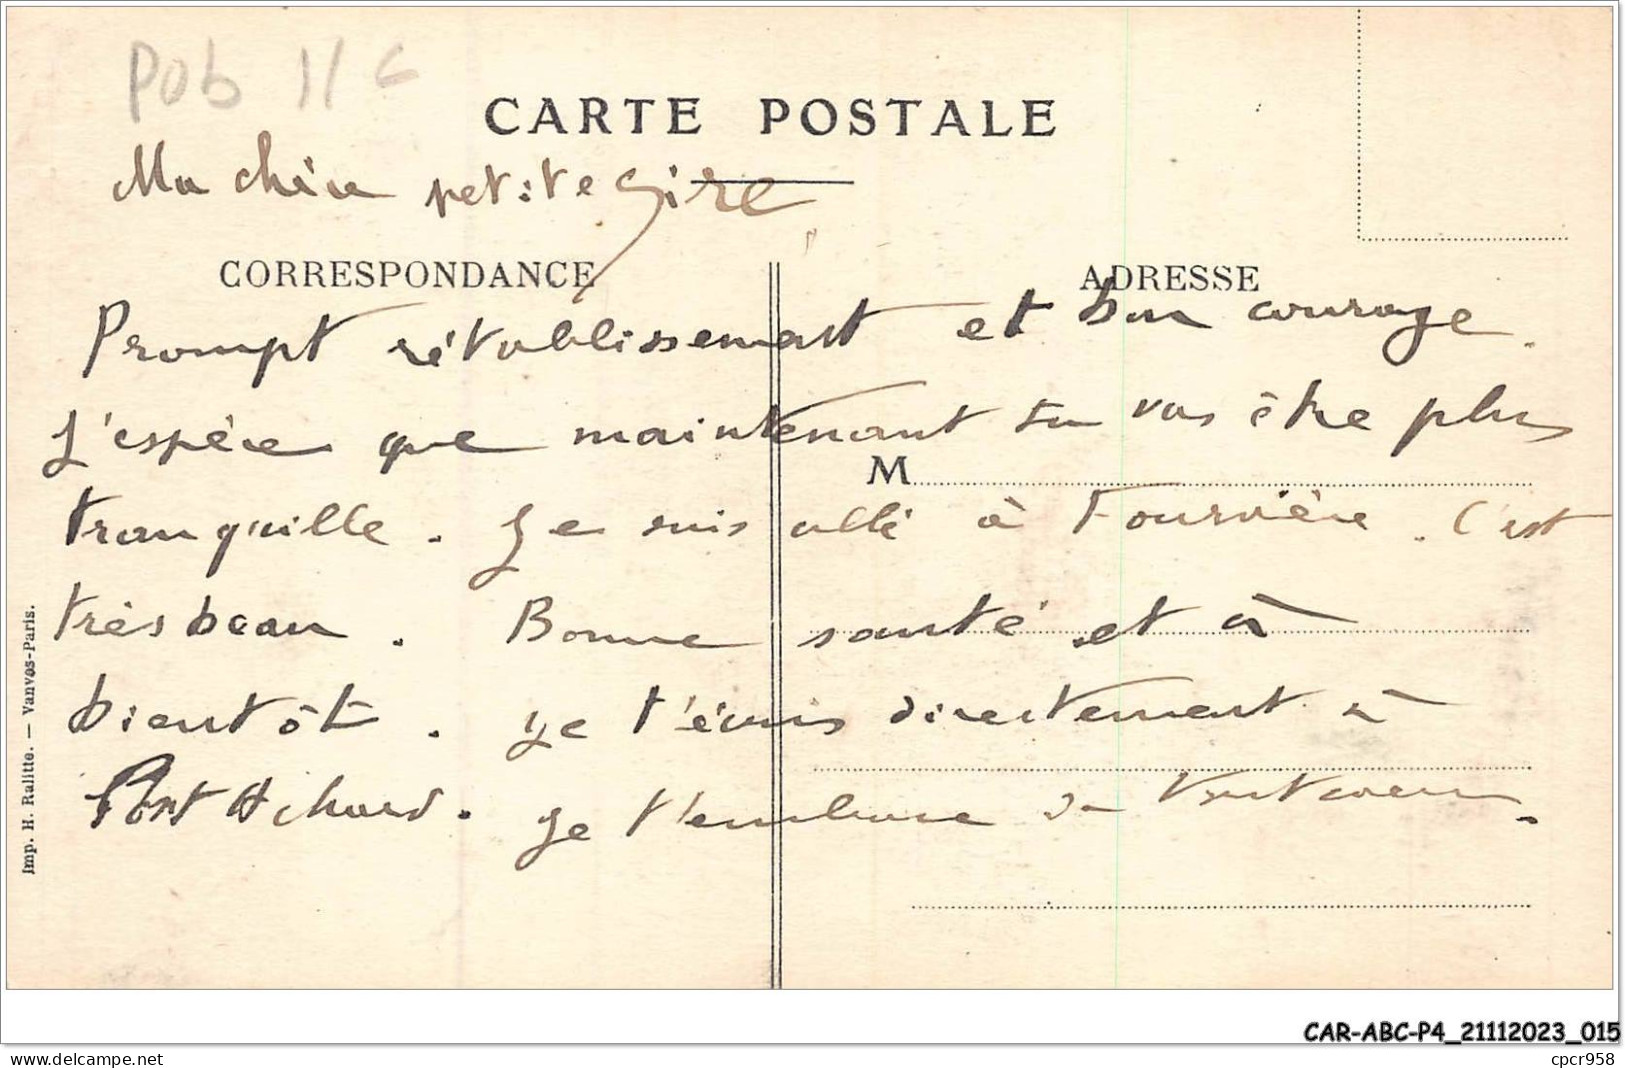 Pob 11 c
CARTE POSTALE
Ma chère petite
CORRESPONDANCE
ADRESSE
Prompt rétablissement et bon courage.
J'espère que maintenant tu vas être plus
M
tranquille. Je suis allé à Fourvière. C'est
très beau. Bonne santé et à
bientôt. Je t'écris directement à
Port Achard. Je t'embrasse de tout coeur.
Imp. H. Ralitte. — Vanves-Paris.
CAR-ABC-P4_21112023_015
www.delcampe.net
cpcr958